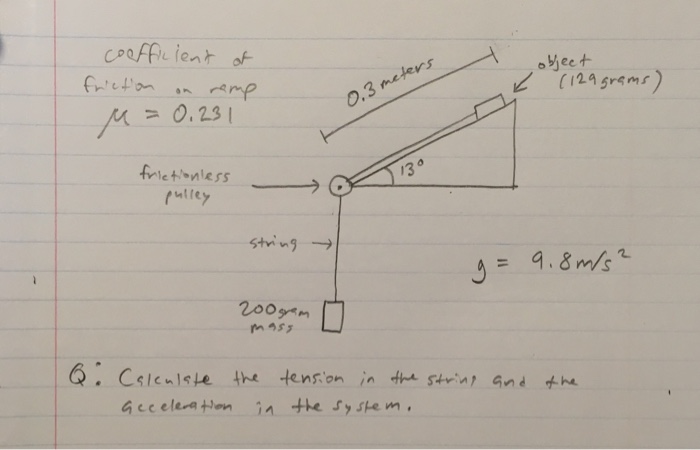 coefficient of
friction on ramp
μ = 0.231
0.3 meters
object
(129 grams)
13°
frictionless
pulley
string
g = 9.8 m/s²
200 gram
mass
Q: Calculate the tension in the string and the
acceleration in the system.